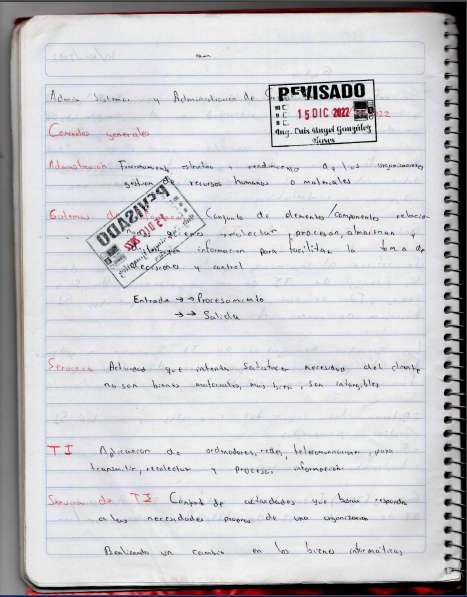 Admin Sistemas y Administración de
REVISADO
15 DIC 2022
Ing. Luis Angel González
2022
Conceptos generales
Administración Funcionamiento, estructura y rendimiento de las organizaciones
gestión de recursos humanos o materiales
Sistemas de Conjunto de elementos/componentes relacio-
recolectar, procesan, almacenan y
información para facilitar la toma de
decisiones y control
REVISADO
15 DIC 2022
Entrada → → Procesamiento
→ → Salida
Servicio Actividad que intenta satisfacer necesidad del cliente
no son bienes materiales, mas bien, son intangibles
TI Aplicación de ordenadores, redes, telecomunicaciones, para
transmitir, recolectar y procesar información
Servicio de TI Conjunto de actividades que buscan responder
a las necesidades propias de una organización
Realizando un cambio en los bienes informáticos